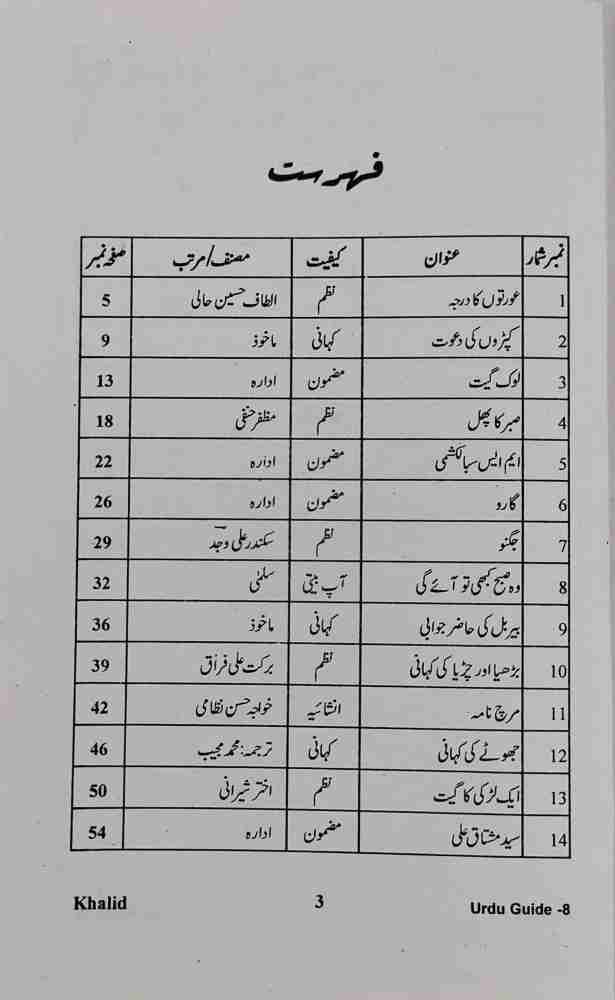 فہرست
نمبر شمار عنوان کیفیت مصنف/مرتب صفحہ نمبر
1 عورتوں کا درجہ نظم الطاف حسین حالی 5
2 کپڑوں کی دعوت کہانی ماخوذ 9
3 لوک گیت مضمون ادارہ 13
4 صبر کا پھل نظم مظفر حنفی 18
5 ایم ایس سبا لکشمی مضمون ادارہ 22
6 گارو مضمون ادارہ 26
7 جگنو نظم سکندر علی وجد 29
8 وہ صبح کبھی تو آئے گی آپ بیتی سلمٰی 32
9 بیربل کی حاضر جوابی کہانی ماخوذ 36
10 بڑھیا اور چڑیا کی کہانی نظم برکت علی فراق 39
11 مرچ نامہ انشائیہ خواجہ حسن نظامی 42
12 جھوٹے کی کہانی کہانی ترجمہ: محمد مجیب 46
13 ایک لڑکی کا گیت نظم اختر شیرانی 50
14 سید مشتاق علی مضمون ادارہ 54
Khalid 3 Urdu Guide -8